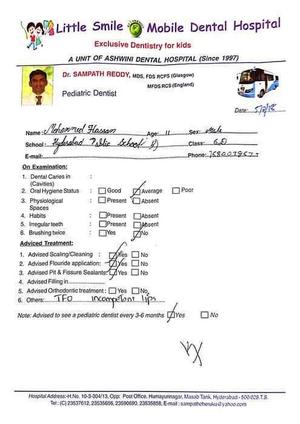 Little Smile Mobile Dental Hospital
Exclusive Dentistry for kids
A UNIT OF ASHWINI DENTAL HOSPITAL (Since 1997)
Dr. SAMPATH REDDY, MDS, FDS RCFS (Glasgow)
MFDS RCS (England)
Pediatric Dentist
Date:
Name: Mohammed Hassan Age: 11 Sex: Male
School: Hyderabad Public School Class: 6D
E-mail: Phone:
On Examination:
1. Dental Caries in :
(Cavities)
2. Oral Hygiene Status : Good Average Poor
3. Physiological : Present Absent
Spaces
4. Habits : Present Absent
5. Irregular teeth : Present Absent
6. Brushing twice : Yes No
Adviced Treatment:
1. Advised Scaling/Cleaning : Yes No
2. Advised Flouride application: Yes No
3. Advised Pit & Fissure Sealants: Yes No
4. Advised Filling in
5. Advised Orthodontic treatment : Yes No
6. Others: TFO incompetent lips
Note: Advised to see a pediatric dentist every 3-6 months Yes No
Hospital Address:-H.No. 10-3-304/13, Opp: Post Office, Humayunnagar, Masab Tank, Hyderabad - 500 028 T.S.
Tel: (C) 23537612, 23535656, 23590690, 23535858, E-mail : sampathcheruku@yahoo.com